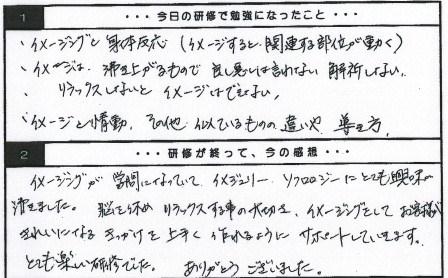 1 ・・・今日の研修で勉強になったこと・・・
・イメージングと身体反応（イメージすると関連する部位が動く）
・イメージは、沸き上がるもので良し悪しは言わない 解析しない。
・リラックスしないとイメージはできない。
・イメージと情動、その他 似ているものの違いや 導き方
2 ・・・研修が終って、今の感想・・・
イメージングが学問になっていて、イメジェリー・ソフロロジーにとても興味が
沸きました。脳を休め リラックスする事の大切さ、イメージングとして お客様が
きれいになる きっかけを上手く作れるようにサポートしていきます。
とても楽しい研修でした。 ありがとうございました。